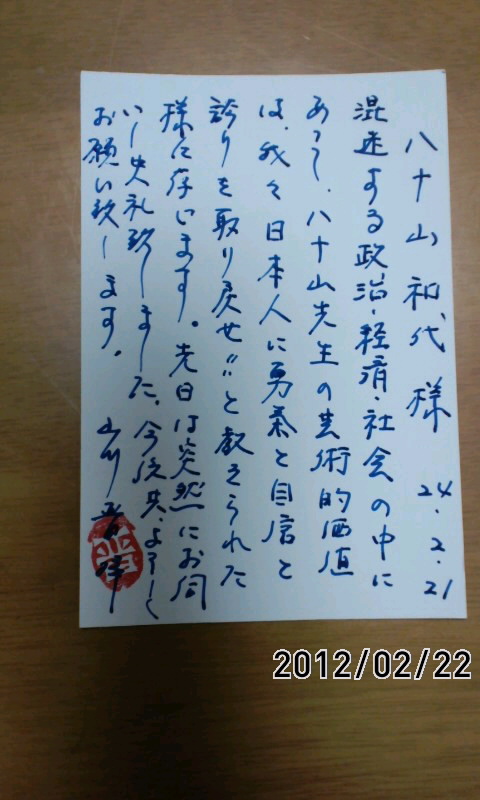 八十山和代様
24.2.21
混迷する政治・経済・社会の中に
あって、八十山先生の芸術的価値
は、我々日本人に勇気と自信と
誇りを取り戻せ〃と教えられた
様に存じます。先日は突然にお伺
いし失礼致しました。今後共、よろしく
お願い致します。
山川
2012/02/22